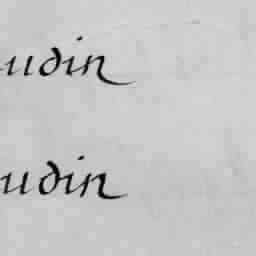 udin
udin